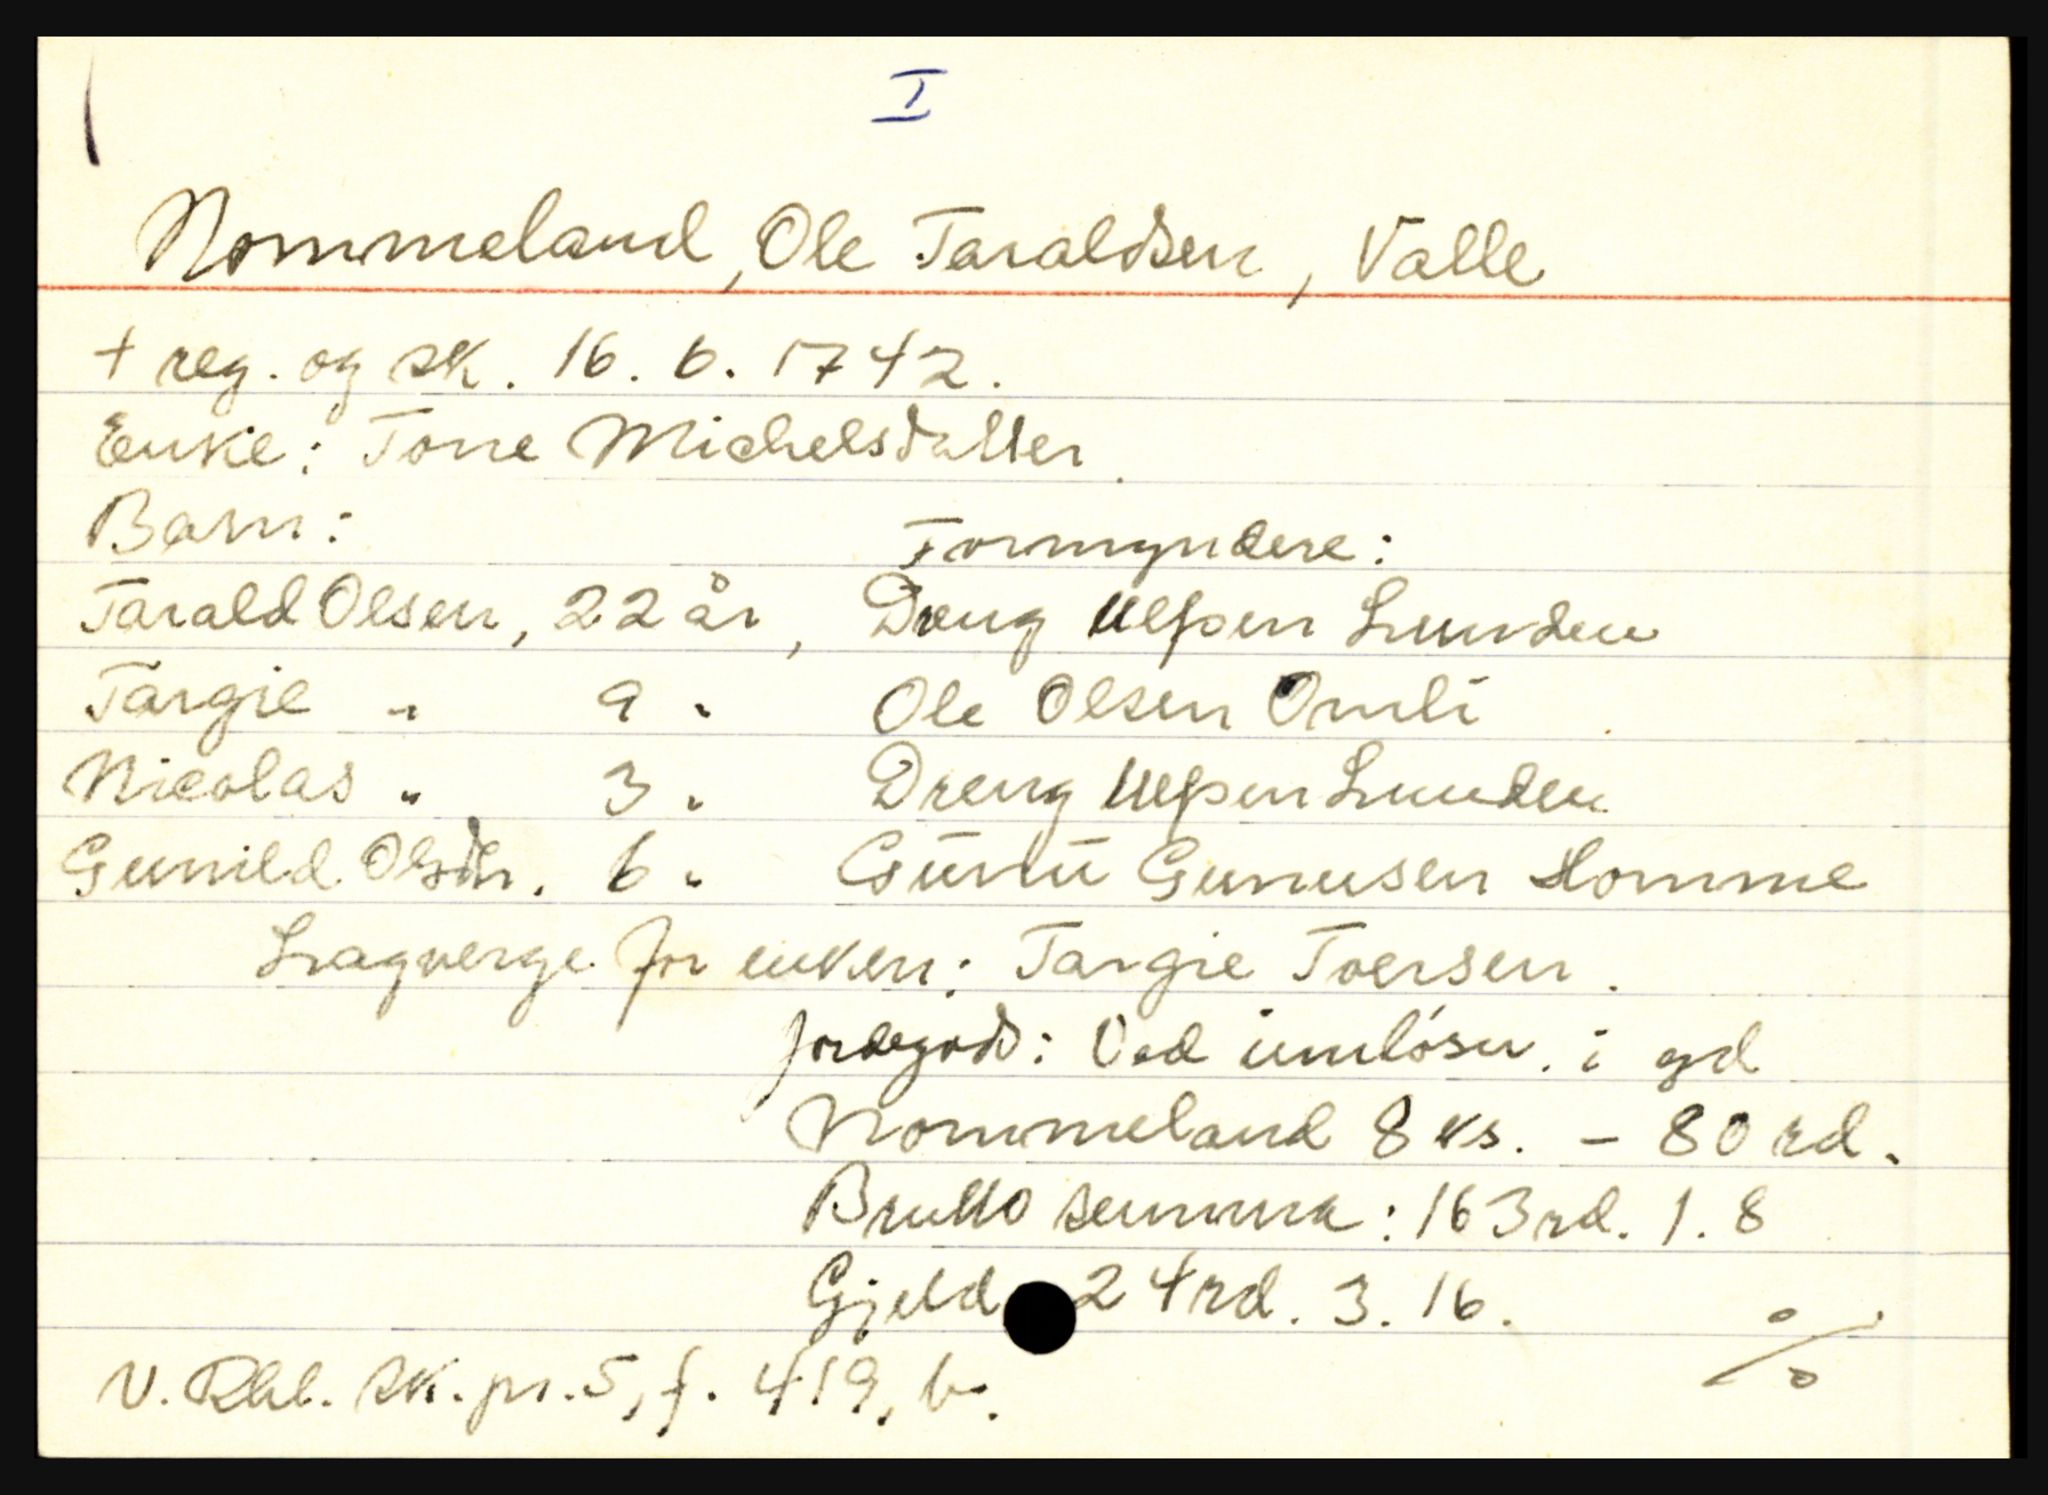 I
Nommeland, Ole Taraldsen, Valle
+ reg. og sk. 16. 6. 1742.
Enke: Tone Michelsdatter.
Barn: Formyndere:
Tarald Olsen, 22 år, Dreng Ulfsen Lunden
Targie " 9 " Ole Olsen Omli
Nicolas " 3 " Dreng Ulfsen Lunden
Gunild Olsdtr. 6 " Gunu Gunusen Homme
Lagverge for enken: Targie Toersen.
Jordegods: Ved innløsn. i gd
Nommeland 8 ks. - 80 rd.
Brutto summa: 163 rd. 1. 8
Gjeld 24 rd. 3. 16.
V. Rbl. sk. pr. 5, f. 419, b. %